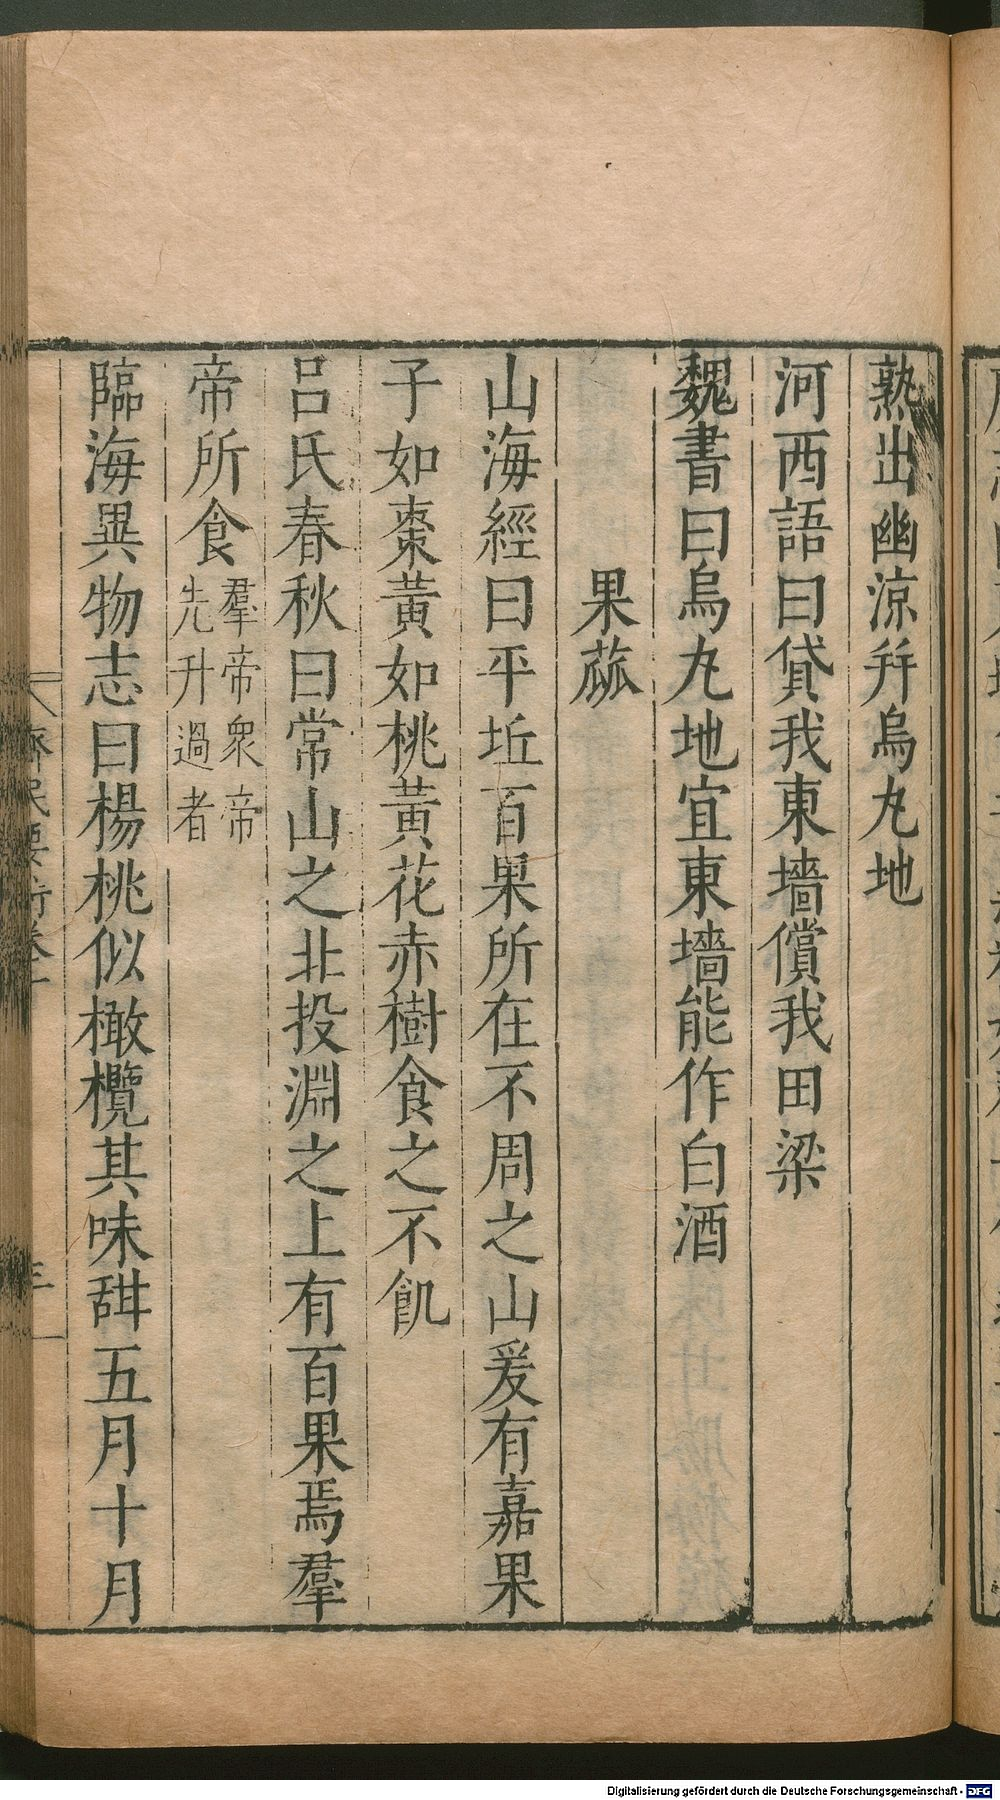 熟出幽涼并烏丸地
河西語曰貸我東墻償我田梁
魏書曰烏丸地宜東墻能作白酒
果蓏
山海經曰平丘百果所在不周之山爰有嘉果
子如棗葉如桃黃花赤樹食之不飢
呂氏春秋曰常山之北投淵之上有百果焉羣
帝所食羣帝衆帝
先升過者
臨海異物志曰楊桃似橄欖其味甜五月十月
齊民要術卷十
三
Digitalisierung gefördert durch die Deutsche Forschungsgemeinschaft - DFG